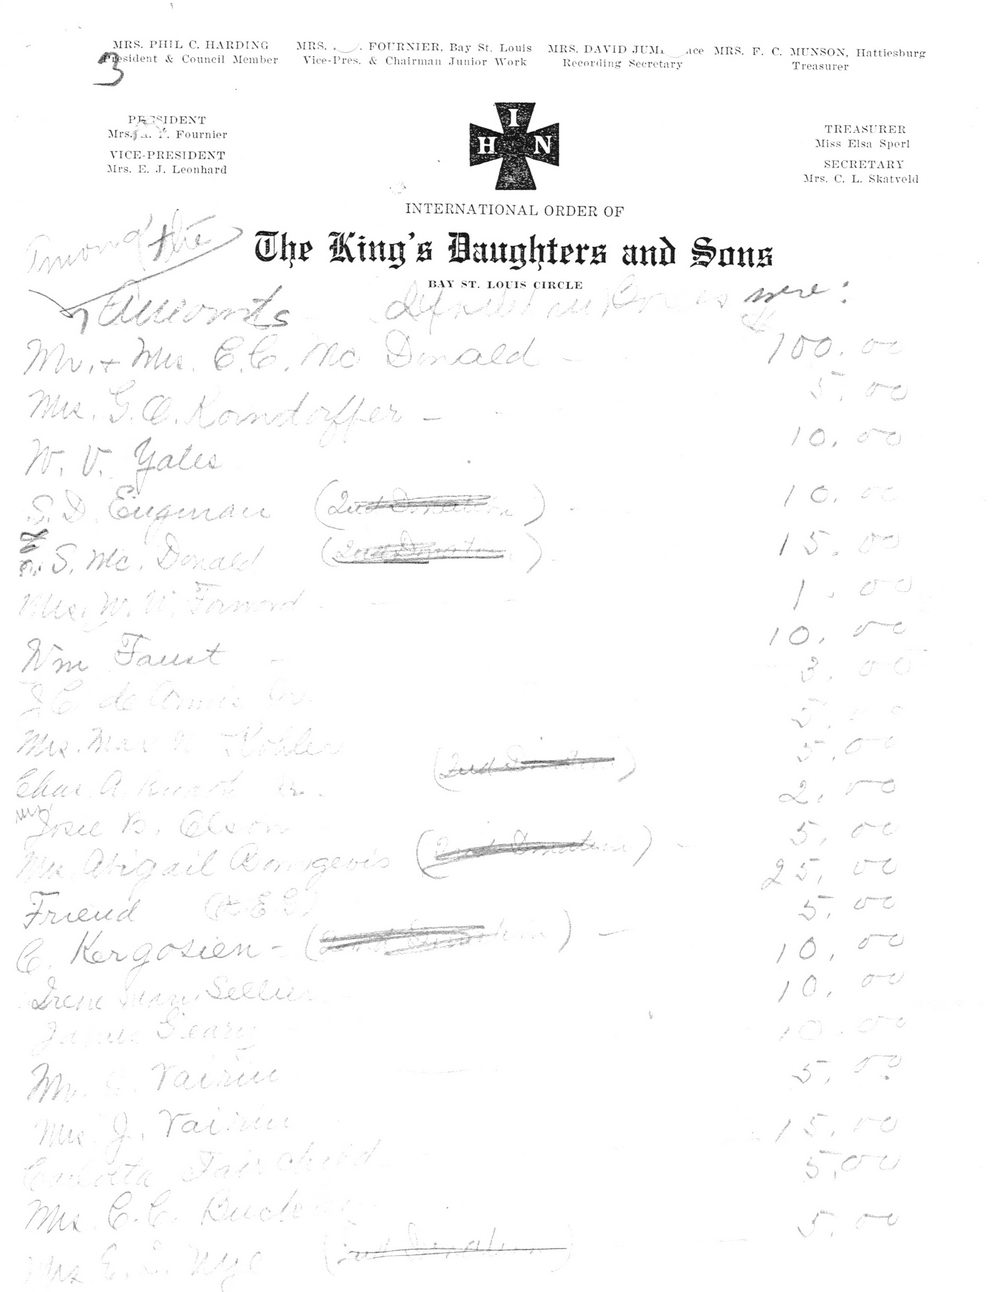 MRS. PHIL C. HARDING
President & Council Member
MRS. FOURNIER, Bay St. Louis
Vice-Pres. & Chairman Junior Work
MRS. DAVID
Recording Secretary
MRS. F. C. MUNSON, Hattiesburg
Treasurer
3
PRESIDENT
Mrs. F. Fournier
VICE-PRESIDENT
Mrs. E. J. Leonhard
I
H N
TREASURER
Miss Elsa Sporl
SECRETARY
Mrs. C. L. Skatvold
INTERNATIONAL ORDER OF
The King's Daughters and Sons
BAY ST. LOUIS CIRCLE
Among the
Amounts in Boxes were:
Mr. + Mrs. C. C. Mc Donald - $100.00
Mrs. G. O. - 5.00
W. V. Yates 10.00
S. D. Engman (2nd Donation) - 10.00
S. Mc. Donald (2nd Donation) - 15.00
Mrs. W. W. 1.00
Wm Faust - 10.00
de Armas 3.00
Mrs. Max Kohler 5.00
Chas. A. Jr. (2nd Donation) 5.00
Josie B. Elson 2.00
Mrs. Abigail Bourgeois (2nd Donation) - 5.00
Friend 25.00
C. Kergosien - (2nd Donation) - 5.00
Irene Sellier 10.00
James Geary 10.00
Mr. Vairin 10.00
Mrs. J. Vairin 5.00
Fairchild 15.00
Mrs. C. C. 5.00
Mrs. E. Nye (2nd Donation) 5.00